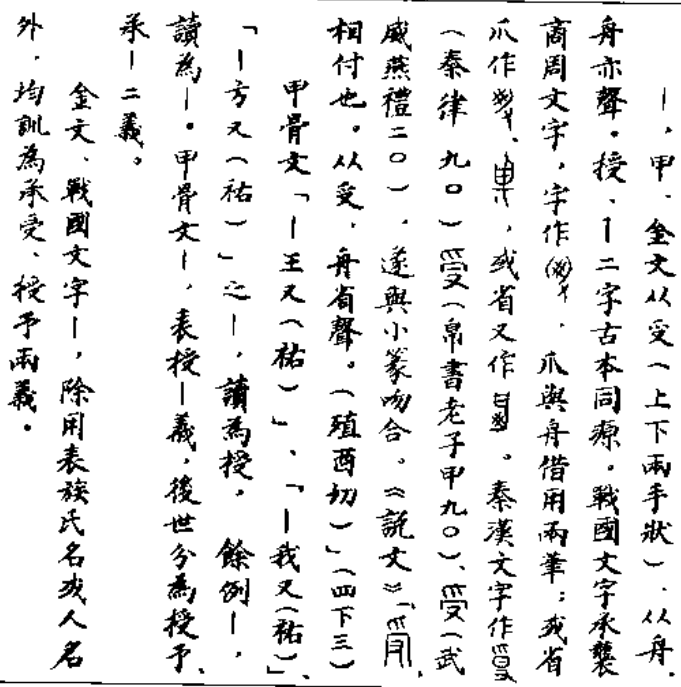 ｜，甲、金文从𠬪（上下兩手狀），从舟，
舟亦聲。授、｜二字古本同源。戰國文字承襲
商周文字，字作，爪與舟借用兩筆；或省
爪作、，或省又作。秦漢文字作
（秦律 九〇）（帛書老子甲九〇）、（武
威燕禮二〇），遂與小篆吻合。《說文》「，
相付也。从𠬪，舟省聲。（殖酉切）」（四下三）
甲骨文「｜王又（祐）」、「｜我又（祐）」、
「｜方又（祐）」之｜，讀為授，餘例｜，
讀為｜。甲骨文｜，表授｜義，後世分為授予、
承｜二義。
金文、戰國文字｜，除用表族氏名或人名
外，均訓為承受、授予兩義。